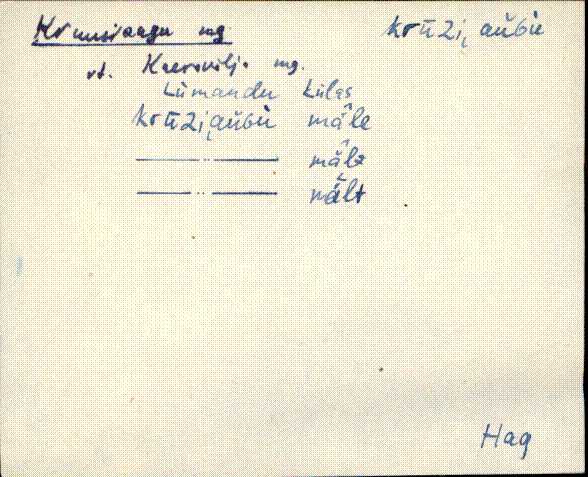 Kruusiaugu mg. krūzi̮aŭbù
vt. Kaeravälja mg.
Lümandu külas
krūzi̮aŭbù mä̆le
—··— mä̆lz
—··— mä̆lt
Hag